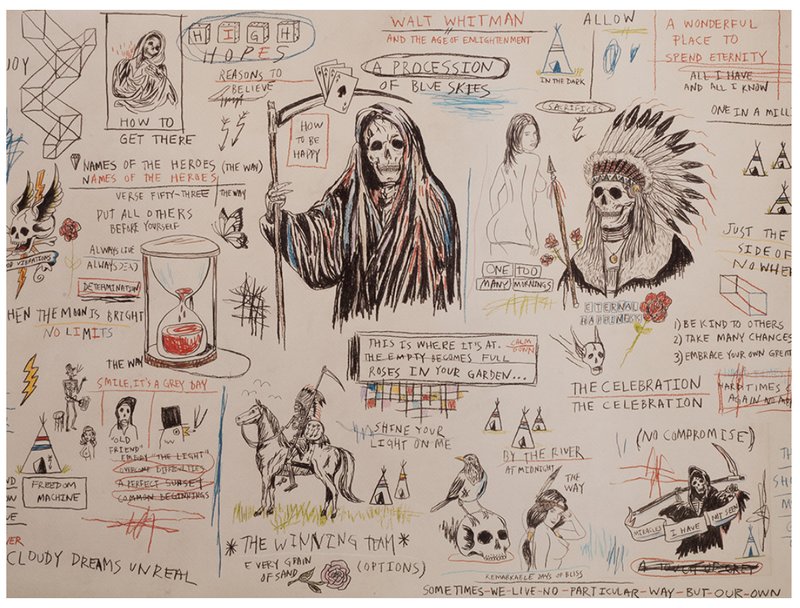 HIGH
HOPES
REASONS TO
BELIEVE
WALT WHITMAN
AND THE AGE OF ENLIGHTENMENT
A PROCESSION
OF BLUE SKIES
ALLOW
IN THE DARK
A WONDERFUL
PLACE TO
SPEND ETERNITY
ALL I HAVE
AND ALL I KNOW
ONE IN A MILL
SACRIFICES
HOW TO
GET THERE
HOW
TO BE
HAPPY
NAMES OF THE HEROES (THE WAY)
NAMES OF THE HEROES
VERSE FIFTY-THREE
THE WAY
PUT ALL OTHERS
BEFORE YOURSELF
ALWAYS LIVE
ALWAYS DEAD
DETERMINATION
VIBRATIONS
HEN THE MOON IS BRIGHT
NO LIMITS
THE WAY
SMILE, IT'S A GREY DAY
ONE TOO
MANY MORNINGS
ETERNAL
HAPPINESS
JUST THE
SIDE OF
NOWHE
1) BE KIND TO OTHERS
2) TAKE MANY CHANCES
3) EMBRACE YOUR OWN GREAT
THIS IS WHERE IT'S AT.
THE EMPTY BECOMES FULL
ROSES IN YOUR GARDEN...
CALM
DOWN
THE CELEBRATION
THE CELEBRATION
HARD TIMES
AGAIN NO MO
"OLD
FRIEND"
ENJOY "THE LIGHT"
OVERCOME DIFFICULTIES
A PERFECT SUNSET
COMMON BEGINNINGS
FREEDOM
MACHINE
CLOUDY DREAMS UNREAL
SHINE YOUR
LIGHT ON ME
*THE WINNING TEAM*
EVERY GRAIN
OF SAND
(OPTIONS)
BY THE RIVER
AT MIDNIGHT
THE
WAY
REMARKABLE DAYS OF BLISS
(NO COMPROMISE)
MIRACLES I HAVE NOT SEEN
A TOUCH OF GREY
SOMETIMES-WE-LIVE-NO-PARTICULAR-WAY-BUT-OUR-OWN